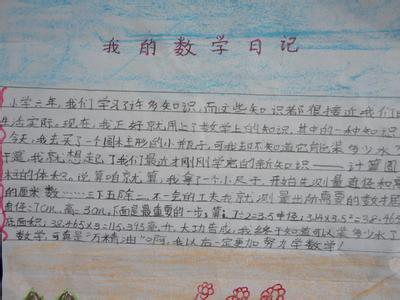 我的数学日记
小学六年，我们学习了许多知识，而这些知识都很接近我们的
生活实际。现在，我正好就用上了数学上的知识，其中的一种知识
今天，我去买了一个圆柱形的小瓶子，可我却不知道它能装多少水了
于是，我就想起了我们最近才刚刚学完的新知识——计算圆
柱的体积。说算咱就算，我拿了一个小尺子，开始先测量直径和高
的厘米数……三下五除二，不一会的工夫我就测量出所需要的数据
直径：7cm，高：3cm，下面是最重要的一步：算。7÷2=3.5 3.14×3.5²=38.465
底面积，38.465×3=115.395毫升。大功告成，我终于知道可以装多少水了
数学，可真是"万精油"啊，我以后一定更加努力学数学！